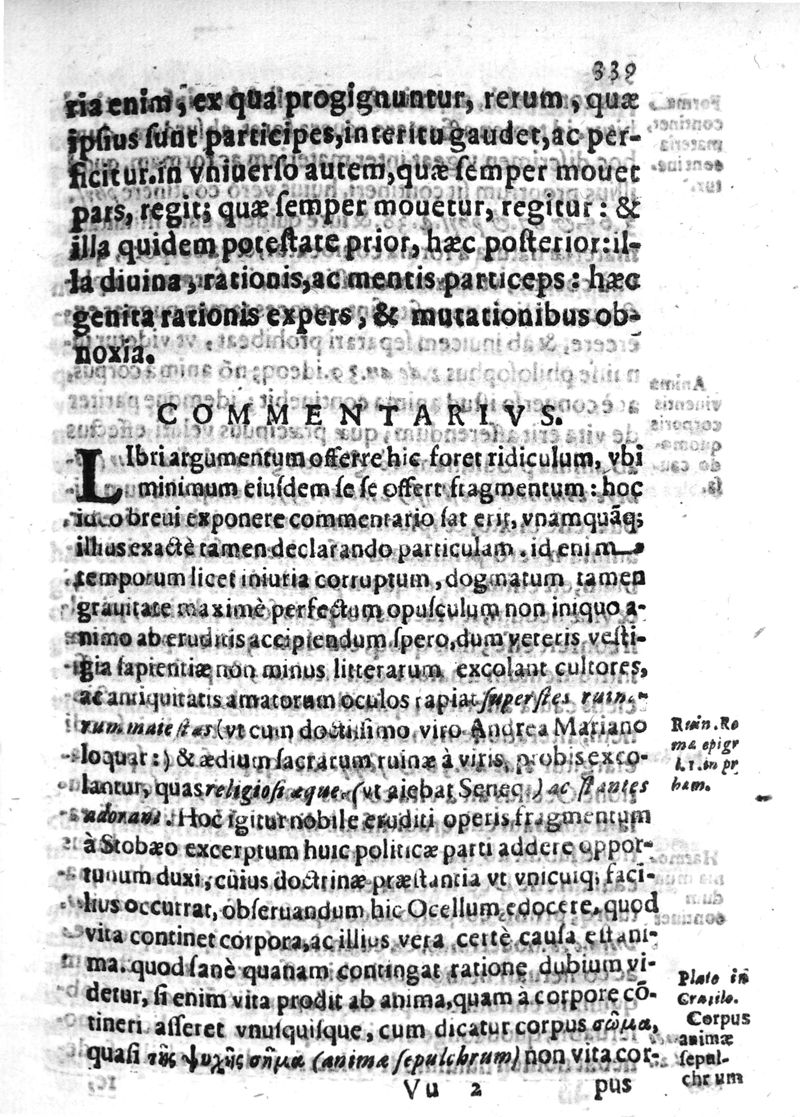 339
ria enim, ex qua progignuntur, rerum, quæ
ipsius sunt participes, interitu gaudet, ac per-
ficitur. in vniuerso autem, quæ semper mouet
pars, regit; quæ semper mouetur, regitur: &
illa quidem potestate prior, hæc posterior: il-
la diuina, rationis, ac mentis particeps: hæc
genita rationis expers, & mutationibus ob-
noxia.
COMMENTARIVS.
LIbri argumentum offerre hic foret ridiculum, vbi
minimum eiusdem se se offert fragmentum: hoc
breui exponere commentario sat erit, vnamquāq;
illius exactè tamen declarando particulam. id enim
temporum licet iniuria corruptum, dogmatum tamen
grauitate maximè perfectum opusculum non iniquo a-
nimo ab eruditis accipiendum spero, dum veteris vesti-
gia sapientiæ non minus litterarum excolant cultores,
ac antiquitatis amatorum oculos rapiat superstes ruin-
rum maiestas (vt cum doctissimo viro Andrea Mariano
loquar:) & ædium sacratum ruinæ à viris probis exco-
lantur, quas religiosi æque (vt aiebat Seneq.) ac stantes
adorant. Hoc igitur nobile eruditi operis fragmentum
à Stobæo excerptum huic politicæ parti addere oppor-
tunum duxi, cuius doctrinæ præstantia vt vnicuiq; faci-
lius occurrat, obseruandum hic Ocellum edocere, quod
vita continet corpora, ac illius vera certè causa est ani-
ma. quod sanè quanam contingat ratione dubium vi-
detur, si enim vita prodit ab anima, quam à corpore cō-
tineri asseret vnusquisque, cum dicatur corpus σῶμα,
quasi τῆς ψυχῆς σῆμα (animæ sepulchrum) non vita cor-
Ruin. Ro
mæ epigr
l. 1. in pr
ham.
Plato in
Cratilo.
Corpus
animæ
sepul-
chrum
Vu 2
pus